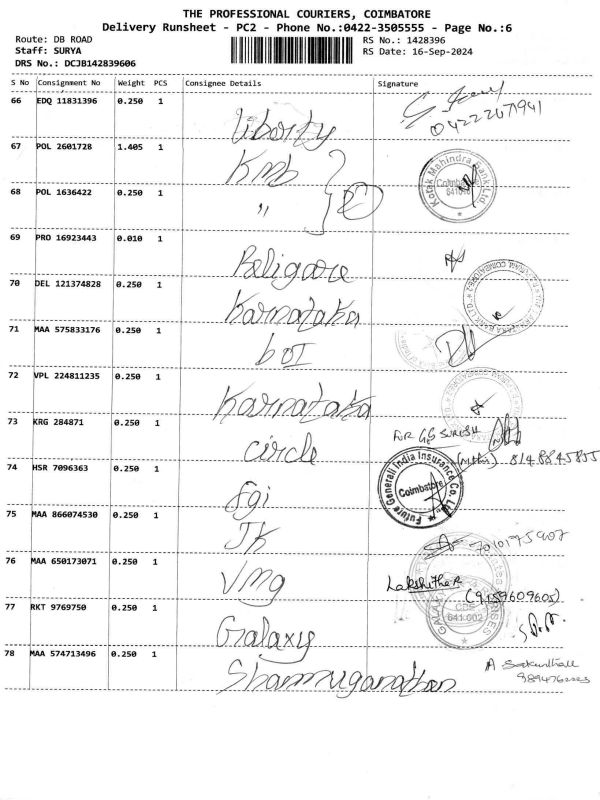 THE PROFESSIONAL COURIERS, COIMBATORE
Delivery Runsheet - PC2 - Phone No.:0422-3505555 - Page No.:6
Route: DB ROAD
RS No.: 1428396
Staff: SURYA
RS Date: 16-Sep-2024
DRS No.: DCJB142839606
S No Consignment No Weight PCS Consignee Details Signature
66 EDQ 11831396 0.250 1 Liborty
04222471941
67 POL 2601728 1.405 1 Kmb
Kotak Mahindra Bank Ltd
Coimbatore
68 POL 1636422 0.250 1 "
69 PRO 16923443 0.010 1 Religare
70 DEL 121374828 0.250 1 Karnataka
71 MAA 575833176 0.250 1 boI
72 VPL 224811235 0.250 1 Karnataka
73 KRG 284871 0.250 1 circle
For GS SURESH
8148845855
74 HSR 7096363 0.250 1 fgi
Future Generali India Insurance Co. Ltd.
Coimbatore
75 MAA 866074530 0.250 1 JK
76 MAA 650173071 0.250 1 VMg
Lakshither
(9159609605)
77 RKT 9769750 0.250 1 Galaxy
GALAXY
CBE
641 002
78 MAA 574713496 0.250 1 Shanmuganathan